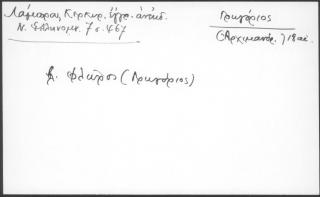 Λάμπρος, Κερκυρ. ἔγγρ. ἀνέκδ.
Ν. Ἑλληνομν. 7 σ. 467
Γρηγόριος
(Ἀρχιμανδρ.) 18 αἰ.
βλ. Φλῶρος (Γρηγόριος)